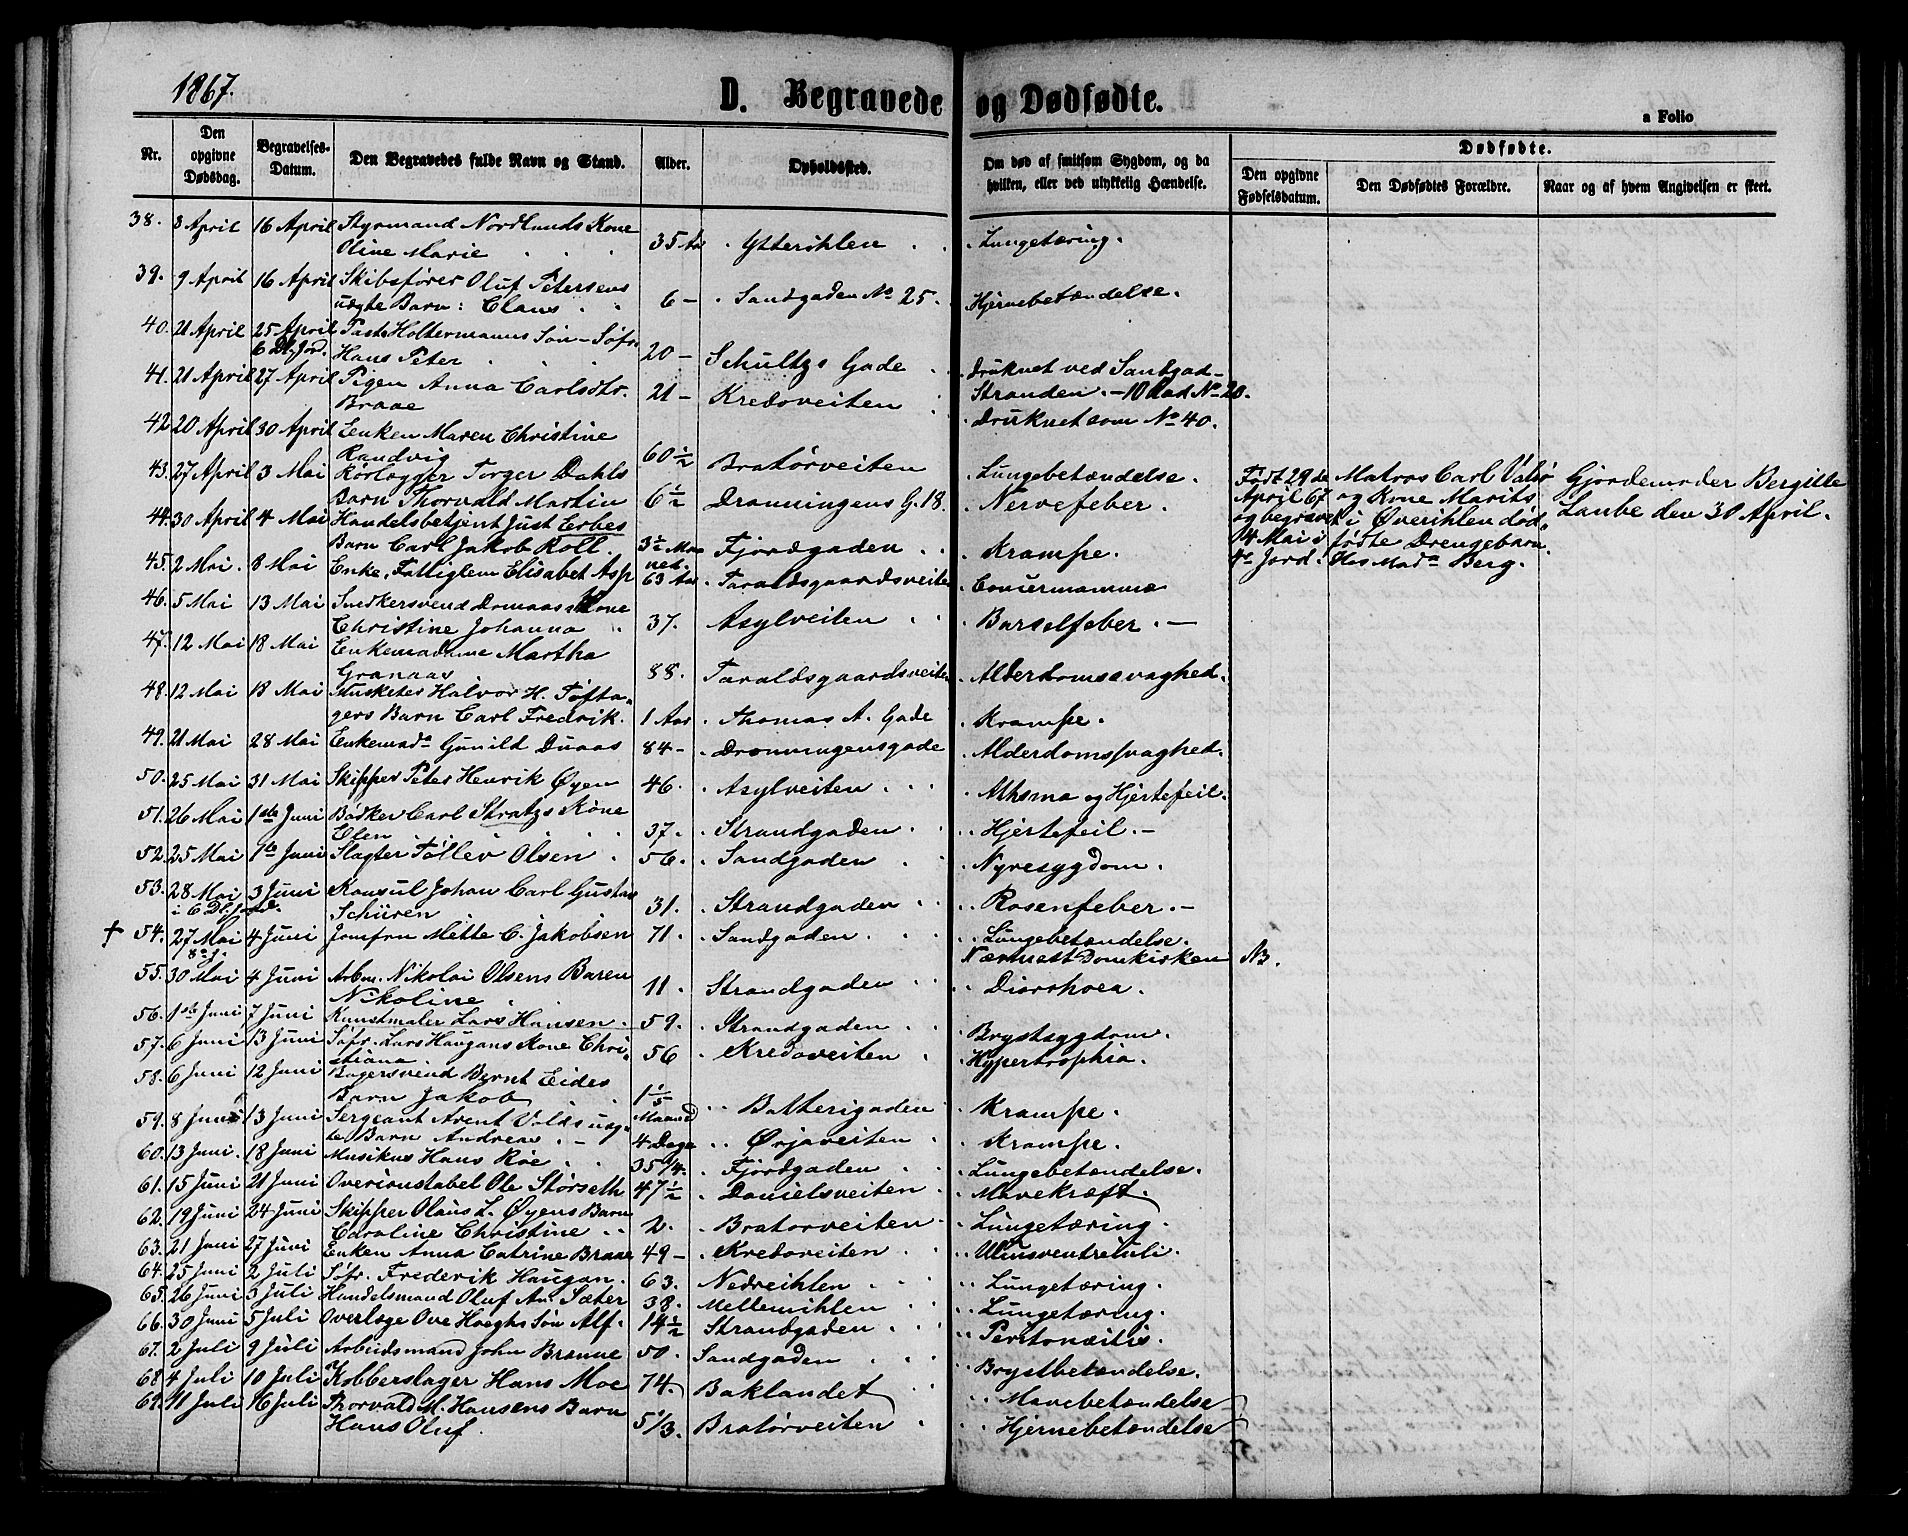 1867.
D. Begravede og Dødfødte.
a Folio
Nr.
Den opgivne Dødsdag.
Begravelses-Datum.
Den Begravedes fulde Navn og Stand.
Alder.
Opholdssted.
Om død af smitsom Sygdom, og da hvilken, eller ved ulykkelig Hændelse.
Dødfødte.
Den opgivne Fødselsdatum.
Den Dødfødtes Forældre.
Naar og af hvem Angivelsen er skeet.
38. 8 April 16 April Styrmand Nordlunds Kone
Oline Marie 35 Aar Ytterihlen Lungetæring.
39. 9 April 16 April Skibsfører Oluf Petersens
uægte Barn: Claus 6 – Sandgaden No 25. Hjernebetændelse.
40. 21 April 25 April Holtermanns Søn – Søfr.
6 Dl. Jord. Hans Peter 20 – Schultzs Gade Druknet ved Sandgad-
41. 21 April 27 April Pigen Anna Carlsdtr. 21 – Kredoveiten Stranden. – No 20.
Braae Druknet som No 40.
42 20 April 30 April Enken Maren Christine
Randvig 60 1/2 Bratørveiten Lungebetændelse.
43. 27 April 3 Mai Rørlægger Torger Dahls
Barn Thorvald Martin 6 1/2 Dronningens G. 18. Nervefeber.
44. 30 April 4 Mai Handelsbetjent Just Erbes
Barn Carl Jakob Roll. 3 1/2 Maaned. Fjordgaden Krampe.
Født 29de Matros Carl Valsø Gjordemoder Bergitte
April 67 og Kone Marits Laube den 30 April.
og begravet i Øverihlen død-
14 Mai i fødte Drengebarn.
4e Jord. Hos Mada Berg.
45. 2 Mai. 8 Mai Enke, Fattiglem Elisabet Asp 63 Aar Taraldsgaardsveiten
46. 5 Mai 13 Mai Snedkersvend Domaas Kone
Christine Johanna 37. Asylveiten Barselfeber. –
47. 12 Mai 18 Mai Enkemadame Martha
Granaas 88. Taraldsgaardsveiten Alderdomssvaghed.
48. 12 Mai 18 Mai Halvor H. Tøfta-
gers Barn Carl Fredrik. 1 Aar Thomas A. Gade Krampe.
49. 21 Mai 28 Mai Enkemada Gunild Duaas 84 – Dronningensgade Alderdomssvaghed.
50. 25 Mai 31 Mai Skipper Peter Henrik Øyen 46. Asylveiten Athsma og Hjertefeil.
51. 26 Mai 1ste Juni Bødker Carl Stratzs Kone
Elen 37. Strandgaden Hjertefeil. –
52. 25 Mai 1ste Juni Slagter Tøllev Olsen 56. Sandgaden Nyresygdom.
53. 28 Mai 3 Juni Konsul Johan Carl Gustav
i 6 Dl. Jord. Schüren 31. Strandgaden Rosenfeber. –
† 54. 27 Mai 4 Juni Jomfru Mette C. Jakobsen 71. Sandgaden Lungebetændelse.
Nærmest Domkirken NB.
55. 30 Mai 4 Juni Arbm. Nikolai Olsens Baren
Nikoline 11. Strandgaden Diarrhoea.
56. 1ste Juni 7 Juni Kunstmaler Lars Hansen. 59. Strandgaden Brystsygdom.
57. 6 Juni 13 Juni Søfr. Lars Haugans Kone Chri-
stiana 56 Kredoveiten Hypertrophia.
58. 6 Juni 12 Juni Bagersvend Bernt Eides
Barn Jakob 1 1/5 Maaned Batterigaden Krampe.
59. 8 Juni 13 Juni Sergeant Arent Volds uæg-
te Barn Andreas 4 Dage Ørjaveiten Krampe.
60. 13 Juni 18 Juni Musikus Hans Røe 35 1/4. Fjordgaden Lungebetændelse.
61. 15 Juni 21 Juni Overconstabel Ole Størseth 47 1/2 Danielsveiten Mavekræft.
62. 19 Juni 24 Juni Skipper Olaus L. Øyens Barn
Caroline Christine 2. Bratørveiten Lungetæring.
63. 21 Juni 27 Juni Enken Anna Catrine Braae 49 – Kredoveiten Ulcus ventriculi.
64. 25 Juni 2 Juli Søfr. Frederik Haugan. 63. Nedreihlen Lungetæring.
65. 26 Juni 3 Juli Handelsmand Oluf An. Sæter 38. Mellemihlen Lungetæring.
66. 30 Juni 5 Juli Overlæge Ove Høeghs Søn Alf. 14 1/2 Strandgaden Peritonæitis.
67. 2 Juli 9 Juli Arbeidsmand John Brænne 50. Sandgaden Brystbetændelse.
68. 4 Juli 10 Juli Kobberslager Hans Moe 74. Baklandet Mavebetændelse
69. 11 Juli 16 Juli Thorvald M. Hansens Barn
Hans Oluf. 5 1/3. Bratørveiten Hjernebetændelse